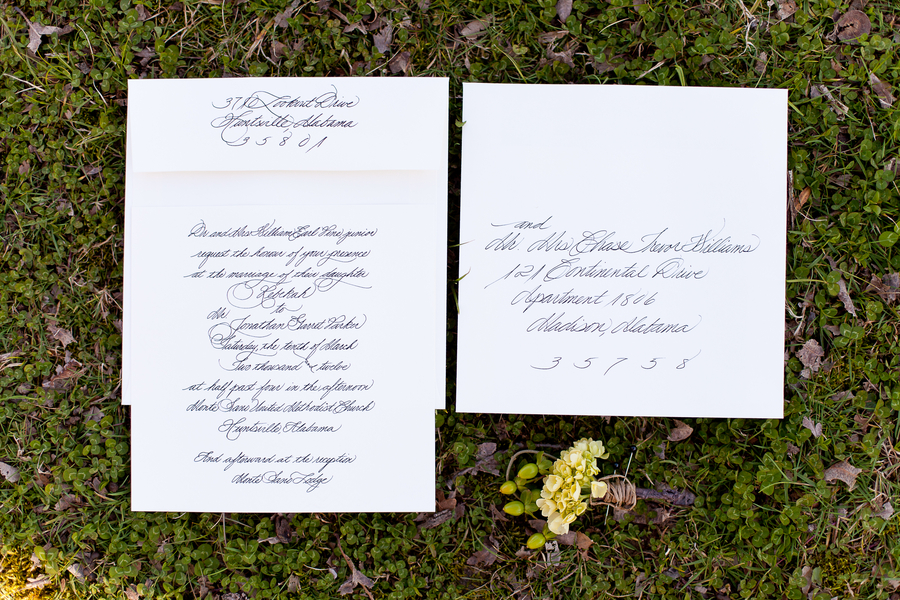 Lookout Drive
Huntsville, Alabama
35801
Dr and Mrs William Earl junior
request the honour of your presence
at the marriage of their daughter
Rebekah
to
Mr Jonathan Garrel Parker
Saturday, the tenth of March
Two thousand & twelve
at half past four in the afternoon
Monte Sano United Methodist Church
Huntsville, Alabama
And afterward at the reception
Monte Sano Lodge
and
Mr Mrs Chase Trevor Williams
121 Continental Drive
Apartment 1806
Madison, Alabama
35758